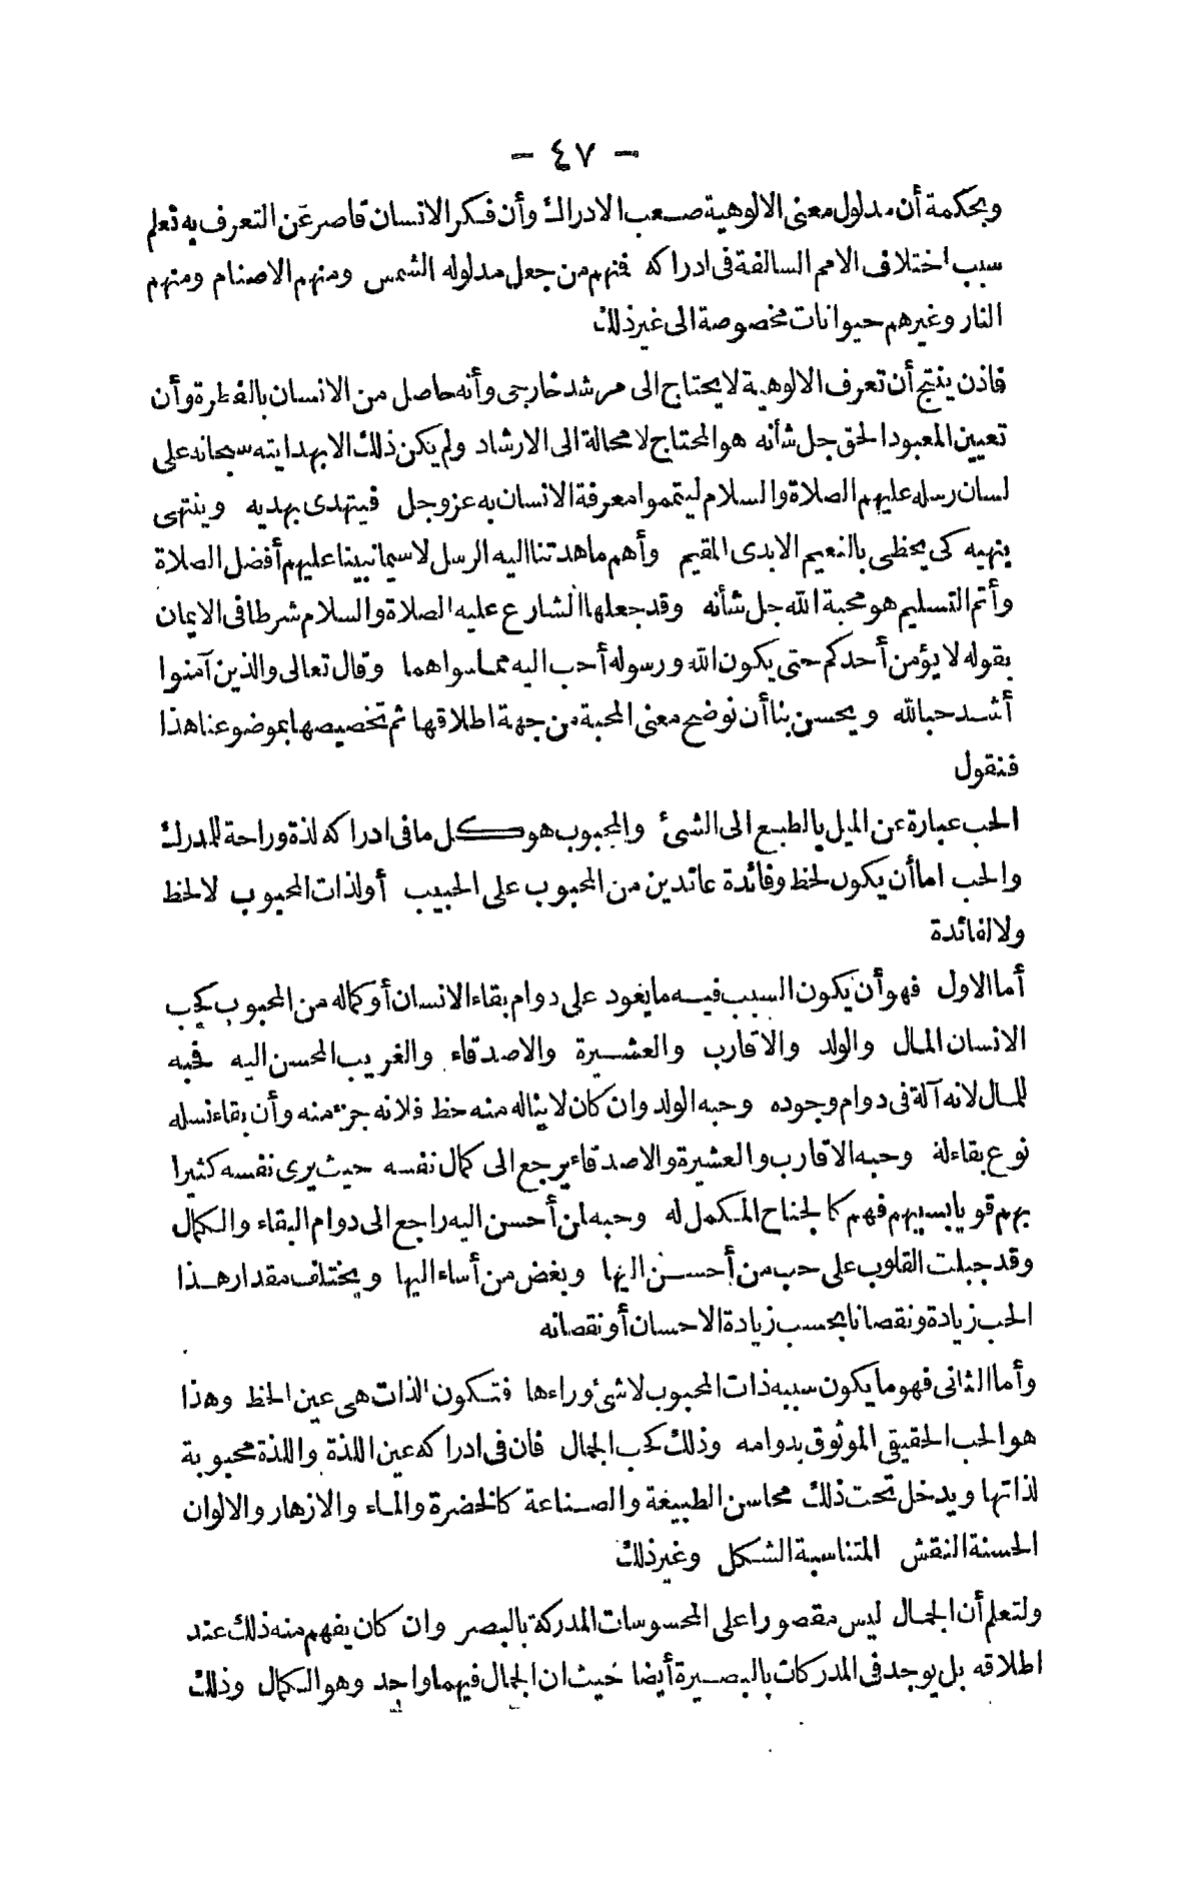 - ٤٧ -
وبحكمة أن مدلول معنى الالوهية صعب الادراك وأن فكر الانسان قاصر عن التعرف به تعلم
سبب اختلاف الامم السالفة فى ادراكه فنهم من جعل مدلوله الشمس ومنهم الاصنام ومنهم
النار وغيرهم حيوانات مخصوصة الى غير ذلك
فاذن ينتج أن تعرف الالوهية لا يحتاج الى مرشد خارجى وأنه حاصل من الانسان بالفطرة وأن
تعيين المعبود الحق جل شأنه هو المحتاج لا محالة الى الارشاد ولم يكن ذلك الا بهدايته سبحانه على
لسان رسله عليهم الصلاة والسلام ليتمموا معرفة الانسان به عز وجل فيتهدى بهديه وينتهى
بنهيه كى يحظى بالنعيم الابدى المقيم وأهم ما هدتنا اليه الرسل لاسيما نبينا عليهم أفضل الصلاة
وأتم التسليم هو محبة الله جل شأنه وقد جعلها الشارع عليه الصلاة والسلام شرطا فى الايمان
بقوله لا يؤمن أحدكم حتى يكون الله ورسوله أحب اليه مما سواهما وقال تعالى والذين آمنوا
أشد حبا لله ويحسن بنا أن نوضح معنى المحبة من جهة اطلاقها ثم تخصيصها بموضوعنا هذا
فنقول
الحب عبارة عن الميل بالطبع الى الشئ والمحبوب هو كل ما فى ادراكه لذة وراحة للمدرك
والحب اما أن يكون لحظ وفائدة عائدين من المحبوب على الحبيب أو لذات المحبوب لا لحظ
ولا لفائدة
أما الاول فهو أن يكون السبب فيه ما يعود على دوام بقاء الانسان أو كماله من المحبوب كحب
الانسان المال والولد والاقارب والعشيرة والاصدقاء والغريب المحسن اليه فحبه
للمال لانه آلة فى دوام وجوده وحبه الولد وان كان لا يناله منه حظ فلانه جزء منه وأن بقاء نسله
نوع بقاء له وحبه الاقارب والعشيرة والاصدقاء يرجع الى كمال نفسه حيث يرى نفسه كثيرا
بهم قويا بسببهم فهم كالجناح المكمل له وحبه لمن أحسن اليه راجع الى دوام البقاء والكمال
وقد جبلت القلوب على حب من أحسن اليها وبغض من أساء اليها ويختلف مقدار هذا
الحب زيادة ونقصانا بحسب زيادة الاحسان أو نقصانه
وأما الثانى فهو ما يكون سببه ذات المحبوب لا شئ وراءها فتكون الذات هى عين الحظ وهذا
هو الحب الحقيقى الموثوق بدوامه وذلك كحب الجمال فان فى ادراكه عين اللذة واللذة محبوبة
لذاتها ويدخل تحت ذلك محاسن الطبيعة والصناعة كالخضرة والماء والازهار والالوان
الحسنة النقش المتناسبة الشكل وغير ذلك
ولتعلم أن الجمال ليس مقصورا على المحسوسات المدركة بالبصر وان كان يفهم منه ذلك عند
اطلاقه بل يوجد فى المدركات بالبصيرة أيضا حيث ان الجمال فيهما واحد وهو الكمال وذلك